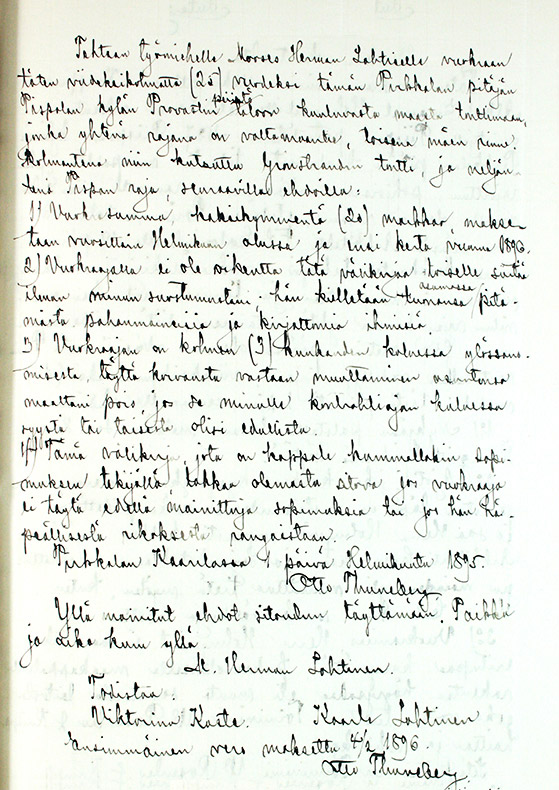 Tahtaan työmiehelle Mooses Herman Lahtiselle vuokraan
täten viideksikolmatta (25) vuodeksi tämän Pirkkalan pitäjän
Pispalan kylän Provastin taloon kuuluvasta maasta tonttimaan,
jonka yhtenä rajana on valtamaantie, toisena mäen rinne,
kolmantena niin kutsuttu Grönstrandin tontti, ja neljän-
tenä Pispan raja, seuraavilla ehdoilla:
1) Vuokrasumma, kaksikymmentä (20) markkaa, makse-
taan vuosittain Helmikuun alussa ja ensi kerta vuonna 1896.
2) Vuokraajalla ei ole oikeutta tätä välikirjaa toiselle siirtää
ilman minun suostumustani. hän kielletään luonansa asumassa pitä-
mästä pahanmaineisia ja kirjattomia ihmisiä.
3) Vuokraajan on kolmen (3) kuukauden kuluessa ylössano-
misesta, täyttä korvausta vastaan muuttaminen asuntonsa
maaltani pois, jos se minulle kontrahtiajan kuluessa
syystä tai toisesta olisi edullista.
4) Tämä välikirja, jota on kappale kummallakin sopi-
muksen tekijällä, lakkaa olemasta sitova jos vuokraaja
ei täytä edellä mainittuja sopimuksia tai jos hän hä-
peällisestä rikoksesta rangaistaan.
Pirkkalan Kaarilassa 1 päivä Helmikuuta 1895.
Otto Thuneberg
Yllä mainitut ehdot sitoudun täyttämään. Paikka
ja aika kuin yllä.
M. Herman Lahtinen.
Todistaa
Viktorina Kaste. Kaarle Lahtinen
Ensimmäinen vero maksettu 4/2 1896
Otto Thuneberg